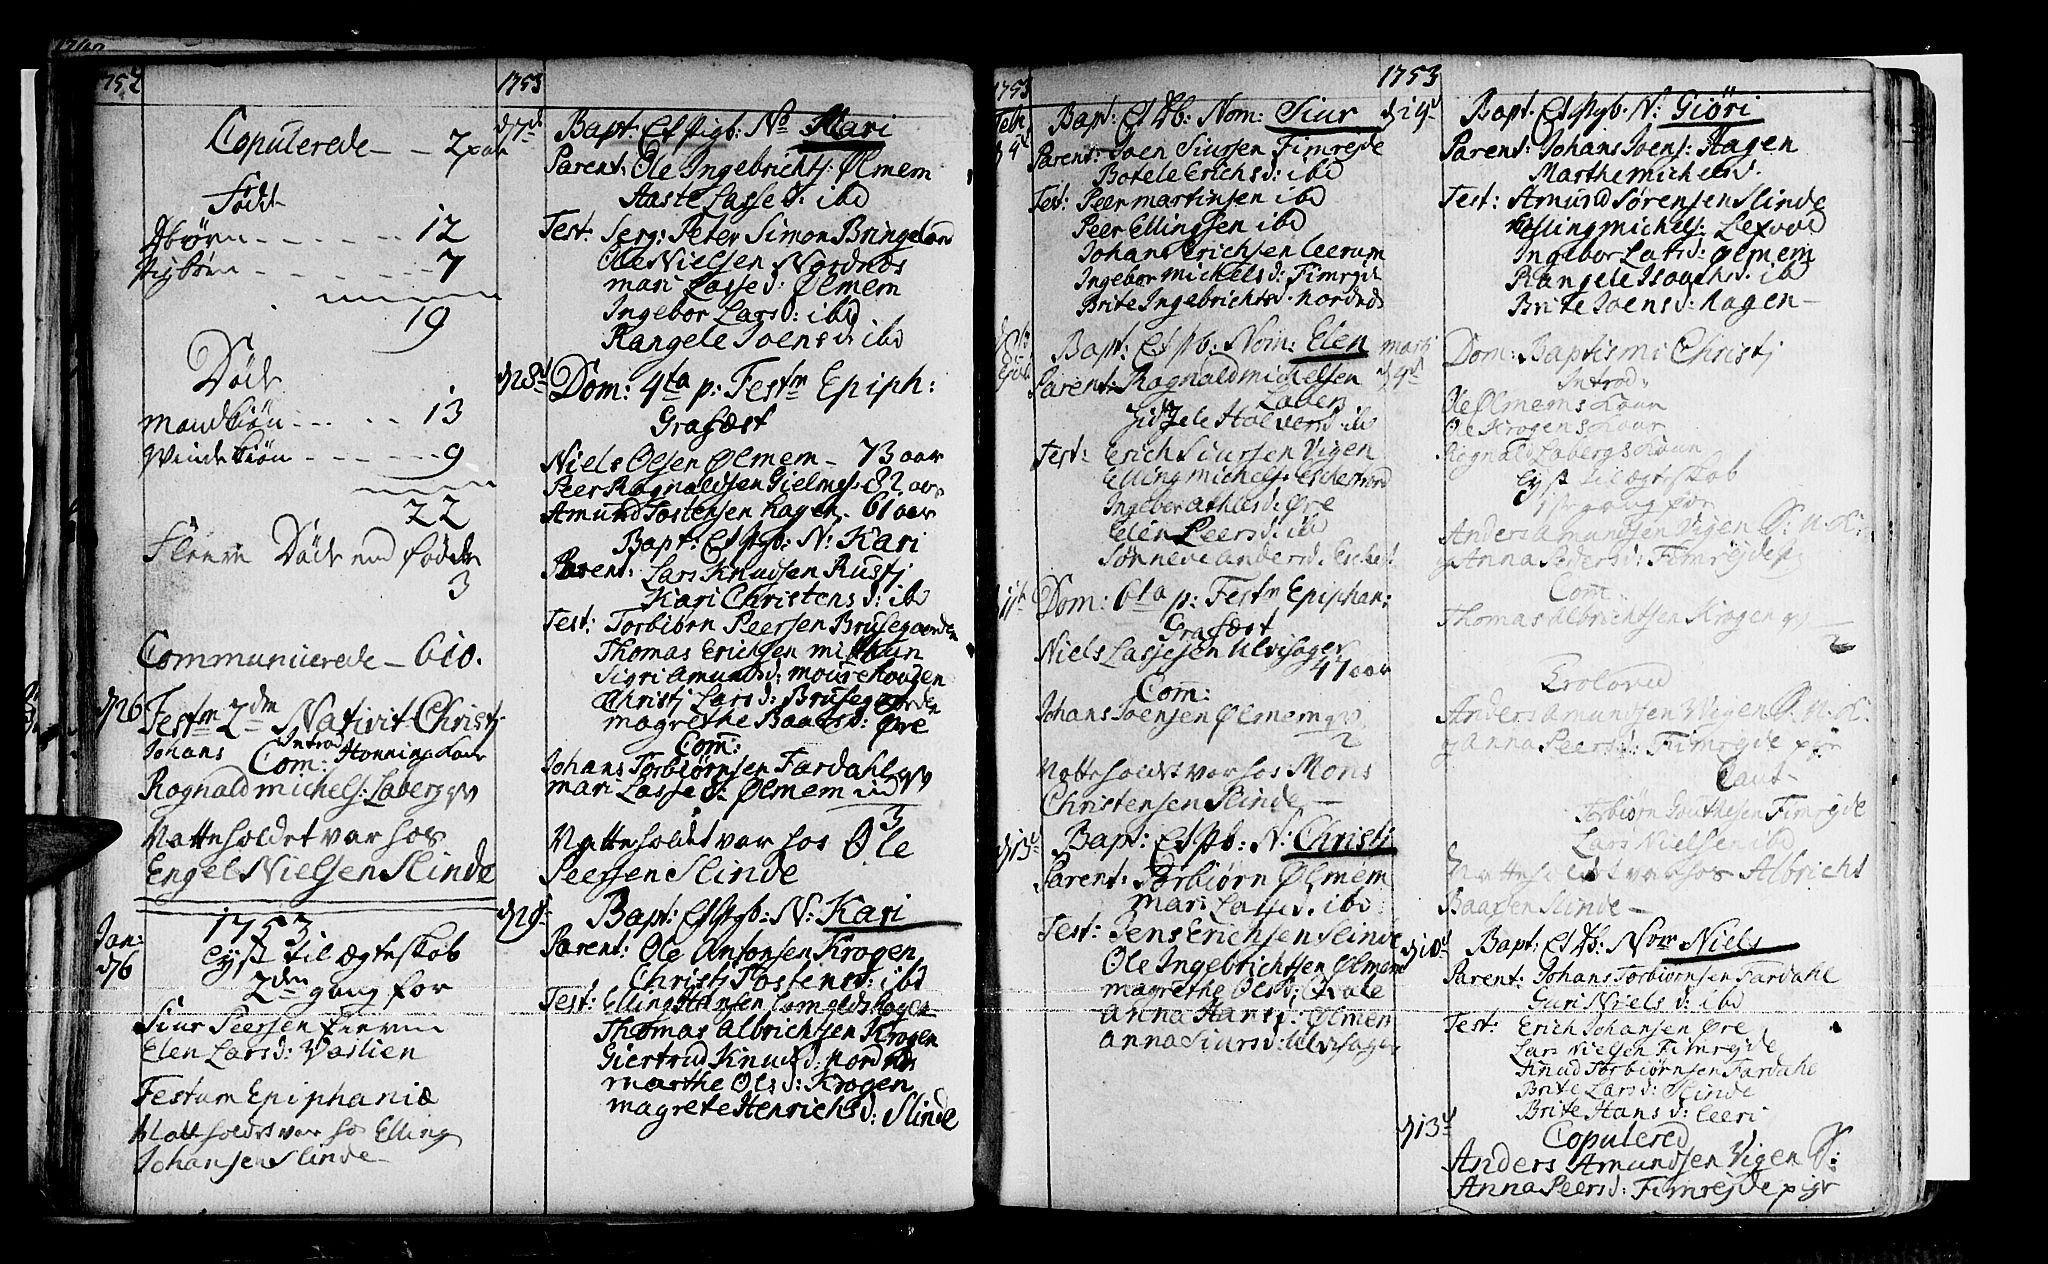 1752
Copulerede - 2 par
Födt
Dbörn - - - - - - 12
Pigbörn - - - - - - 7
19
Död
Mandkiön - - - - 13
Qvindekiön - - - - - - 9
22
Fleere Död end född
3
Communicerede - 610.
d 26 Festm 2dm Nativit Christj
Introd
Johans Honningskone
Com:
Rognald michels: Laberg
Natteholdet var hos
Engel Nielsen Slinde
1753
Jan:
d 6
Lyst til ægteskab
2den gang for
Siur Peersen
Elen Larsd: Vaslien
Festum Epiphaniæ
Nattholdet var hos Elling
Johansen Slinde
1753
d 7de Bapt: Et Pigb: No Mari
Parent: Ole Ingebrichts: Ølmem
Aaste Lassed: ibd
Test: Serg: Peter Simon Bringeland
Ole Nielsen Nordnæs
mari Lassed: Ølmem
Ingebor Larsd: ibd
Rangele Joensd: ibd
d 28d Dom: 4ta p: Festm Epiph:
Grafæst
Niels Olsen Ølmem - 73 aar
Peer Rognaldsen Gielmes - 82 aar
Amund Tostensen hagen - 61 aar
Bapt: Et Pigb: N: Kari
Parent: Lars Knudsen Rustj
Kari Christensd: ibd
Test: Torbiörn Peersen Brusegaarden
Thomas Erichsen
Sigri Amundsd: mourehougen
Christj Larsd: Brusegarde
magrethe Baarsd: Øre
Com:
Johans Torbiörnsen Fardahl
mari Lassed: Ølmem
3
Natteholdet var hos Ole
Peersen Slinde
d 29 Bapt: Et Pigb: N: Kari
Parent: Ole Antonsen Krogen
Christj Tostensd: ibd
Test: Elling Hansen
Thomas Albrichtsen Krogen
Giertrud Knudsd: nordnæs
marthe Olsd: Krogen
magrete Henrichsd: Slinde
1753
Feb
d 4d Bapt: Et Db: Nom: Siur
Parent: Joen Siursen Fimrejde
Botele Erichsd: ibd
Test: Peer martinsen ibd
Peer Ellingsen ibd
Johans Erichsen Leerum
Ingebor michelsd: Fimrejde
Brite Ingebrichtsd: nordnæs
Bapt: Et Pb: Nom: Elen
Parent: Rognald michelsen
Laberg
Zidzele Halversd: ibd
Test: Erich Siursen Vigen
Elling michels: Eschestrand
Ingebor Øre
Elen Peersd: ibd
Sønneve Andersd: Eschest
d 11te Dom: 6ta p: Festm Epiphan:
Grafæst
Niels Lassesen Ulvisager
47 aar
Com:
Johans Joensen Ølmem
2
Natteholdet var hos Mons
Christensen Slinde -
d 13d Bapt: Et Pb: N: Christj
Parent: Torbiörn Ølmem
mari Lassed: ibd:
Test: Jens Erichsen Slinde
Ole Ingebrichtsen Ølmem
magrethe Olsd: Qvale
Anna Hansd: Ølmem
anna Siursd: Ulvisager
1753
d 19d Bapt: Et Pgb: N: Giöri
Parent: Johans Joens: Hagen
Marthe michelsd:
Test: Amund Sörensen Slinde
Elling michels:
Ingebor Larsd: Ølmem
Rangele Isachsd: ibd
Brite Joensd: hagen -
Martj
d 4d Dom: Baptismi Christj
Introd:
Ole Ølmems Kone
Ole Krogens Kone
Rognald Labergs Kone
Lyst til ægteskab
1ste gang for
Anders Amundsen Vigen S: u. K:
og Anna Pedersd: Fimrejde
Com:
Thomas Albrichtsen Krogen
2
Troloved
Anders Amundsen Vigen S. u. K.
og Anna Peersd: Fimrejde pige
Caut
Torbiörn Gouthesen Fimrejde
Lars Nielsen ibd
Natteholdet var hos Albricht
Baarsen Slinde -
d 10d Bapt: Et Db: Nom Niels
Parent: Johans Torbiörnsen Fardahl
Guri Nielsd: ibd
Test: Erich Johansen Øre
Lars Nielsen Fimrejde
Knud Torbiörnsen Fardahl
Brite Larsd: Slinde
Brite Hansd: Leeri
d 13d Copulered
Anders Amundsen Vigen S:
Anna Peersd: Fimrejde pige